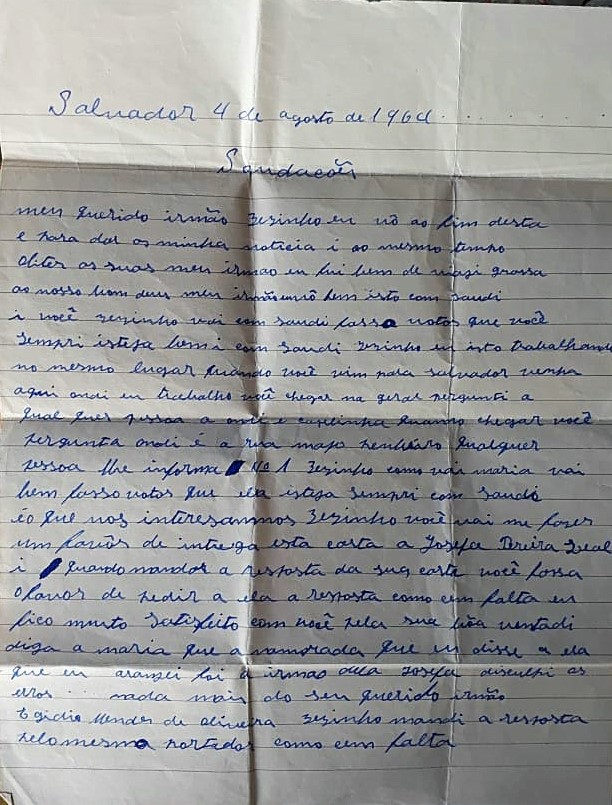 Salvador 4 de agosto de 196
Saudacoẽs
meu querido irmão Zezinho eu vô ao fim desta
e para dar as minha noticia i ao mesmo tempo
obiter as suas meu irmao eu fui bem de viagi grassa
ao nosso bom deus meu irmão eu vô bem isto com saudi
i você zezinho vai com saudi fasso votos que você
sempri isteja bem i com saudi zezinho eu isto trabalhando
no mesmo lugar quando você vim para salvador venha
aqui ondi eu trabalho você chegar na geral pergunti a
qual quer pessoa a ondi e quando chegar você
pergunta ondi é a rua qualquer
pessoa lhe informa No 1 Zezinho como vai maria vai
bem fasso votos que ela isteja sempri com saudi
éo que nos interesammos Zezinho você vai me fazer
um favôr de intrega esta carta a Josefa Pereira Leal
i quando mandar a resposta da sua carta você fassa
o favor de pedir a ela a resposta como cem falta eu
fico muito satisfeito com você pela sua bôa vontadi
diga a maria que a namorada que eu disse a ela
que eu aranjei foi a irmao dela Josefa disculpi os
erros nada mais do seu querido irmão
Egidio Mendes de oliveira zezinho mandi a resposta
pelo mesmo portador como cem falta